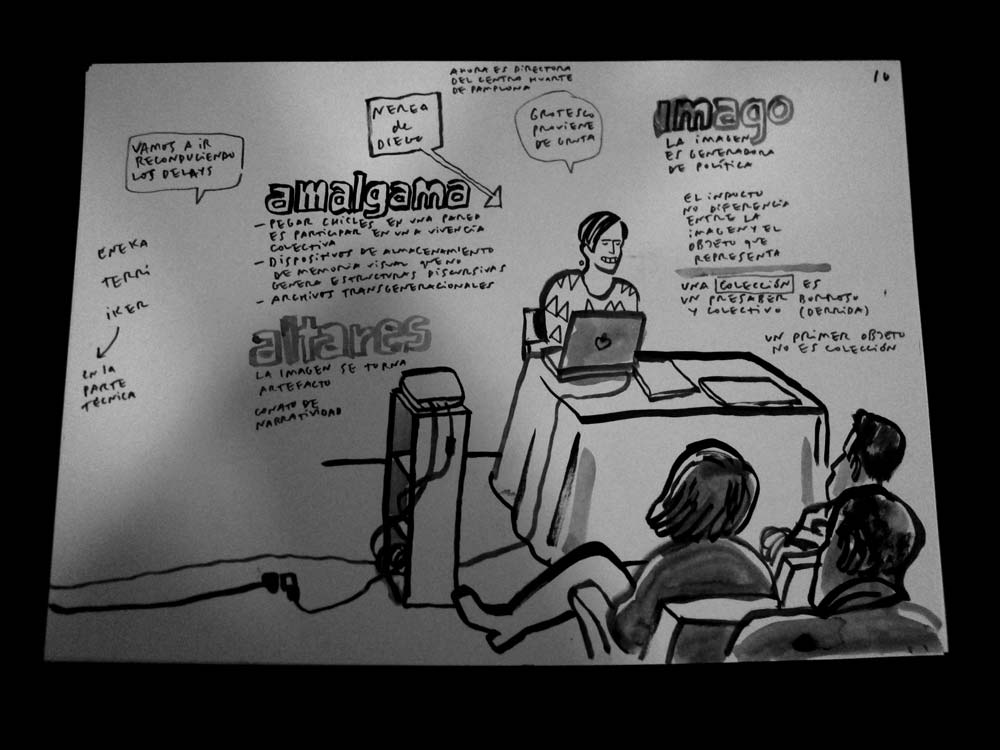 16
AHORA ES DIRECTORA
DEL CENTRO HUARTE
DE PAMPLONA
NEREA
de
DIEGO
GROTESCO
PROVIENE
DE GRUTA
VAMOS A IR
RECONDUCIENDO
LOS DELAYS
amalgama
– PEGAR CHICLES EN UNA PARED
ES PARTICIPAR EN UNA VIVENCIA
COLECTIVA
– DISPOSITIVOS DE ALMACENAMIENTO
DE MEMORIA VISUAL QUE NO
GENERA ESTRUCTURAS DISCURSIVAS
– ARCHIVOS TRANSGENERACIONALES
altares
LA IMAGEN SE TORNA
ARTEFACTO
CONATO DE
NARRATIVIDAD
ENEKA
TERRI
iKER
en la
PARTE
TÉCNICA
imago
LA IMAGEN
ES GENERADORA
DE POLÍTICA
EL INDOCTO
NO DIFERENCIA
ENTRE LA
IMAGEN Y EL
OBJETO QUE
REPRESENTA
UNA COLECCIÓN ES
UN PRESABER BORROSO
Y COLECTIVO (DERRIDA)
UN PRIMER OBJETO
NO ES COLECCIÓN